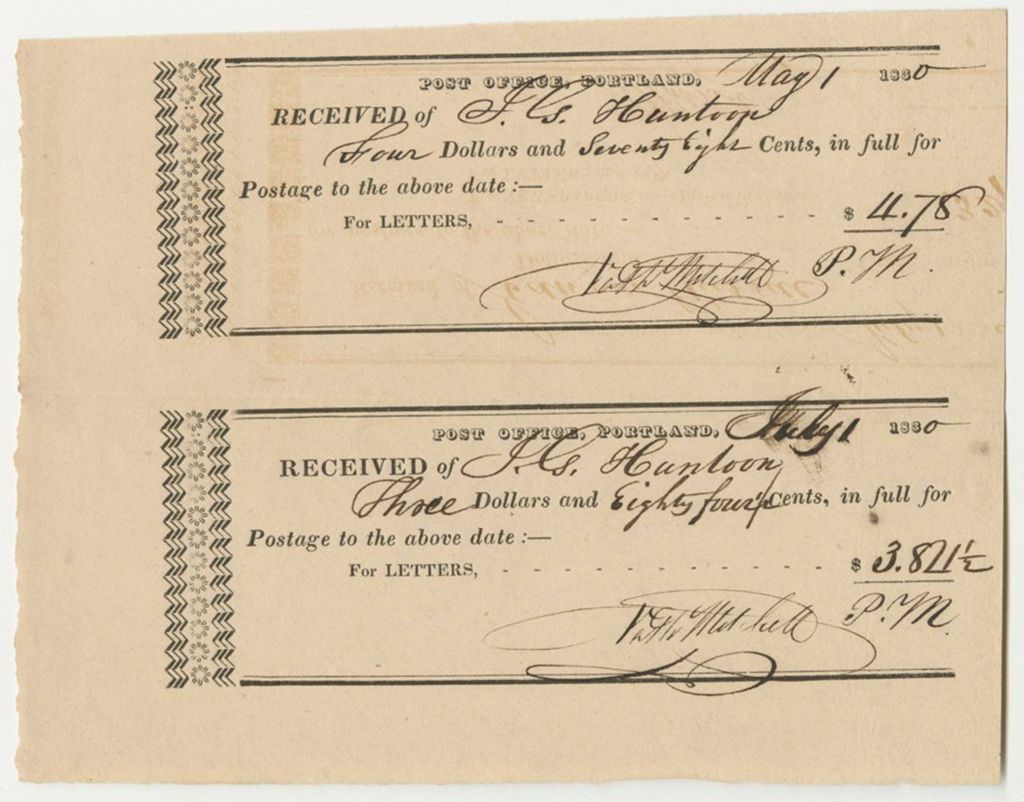 POST OFFICE, PORTLAND, May 1 1830
RECEIVED of J. G. Huntoon
Four Dollars and Seventy Eight Cents, in full for
Postage to the above date :—
For LETTERS, - - - - - - - - - - - - $ 4.78
Nathl Mitchell P. M.
POST OFFICE, PORTLAND, July 1 1830
RECEIVED of J. G. Huntoon
Three Dollars and Eighty four ½ Cents, in full for
Postage to the above date :—
For LETTERS, - - - - - - - - - - - - $ 3.84½
Nathl Mitchell P. M.